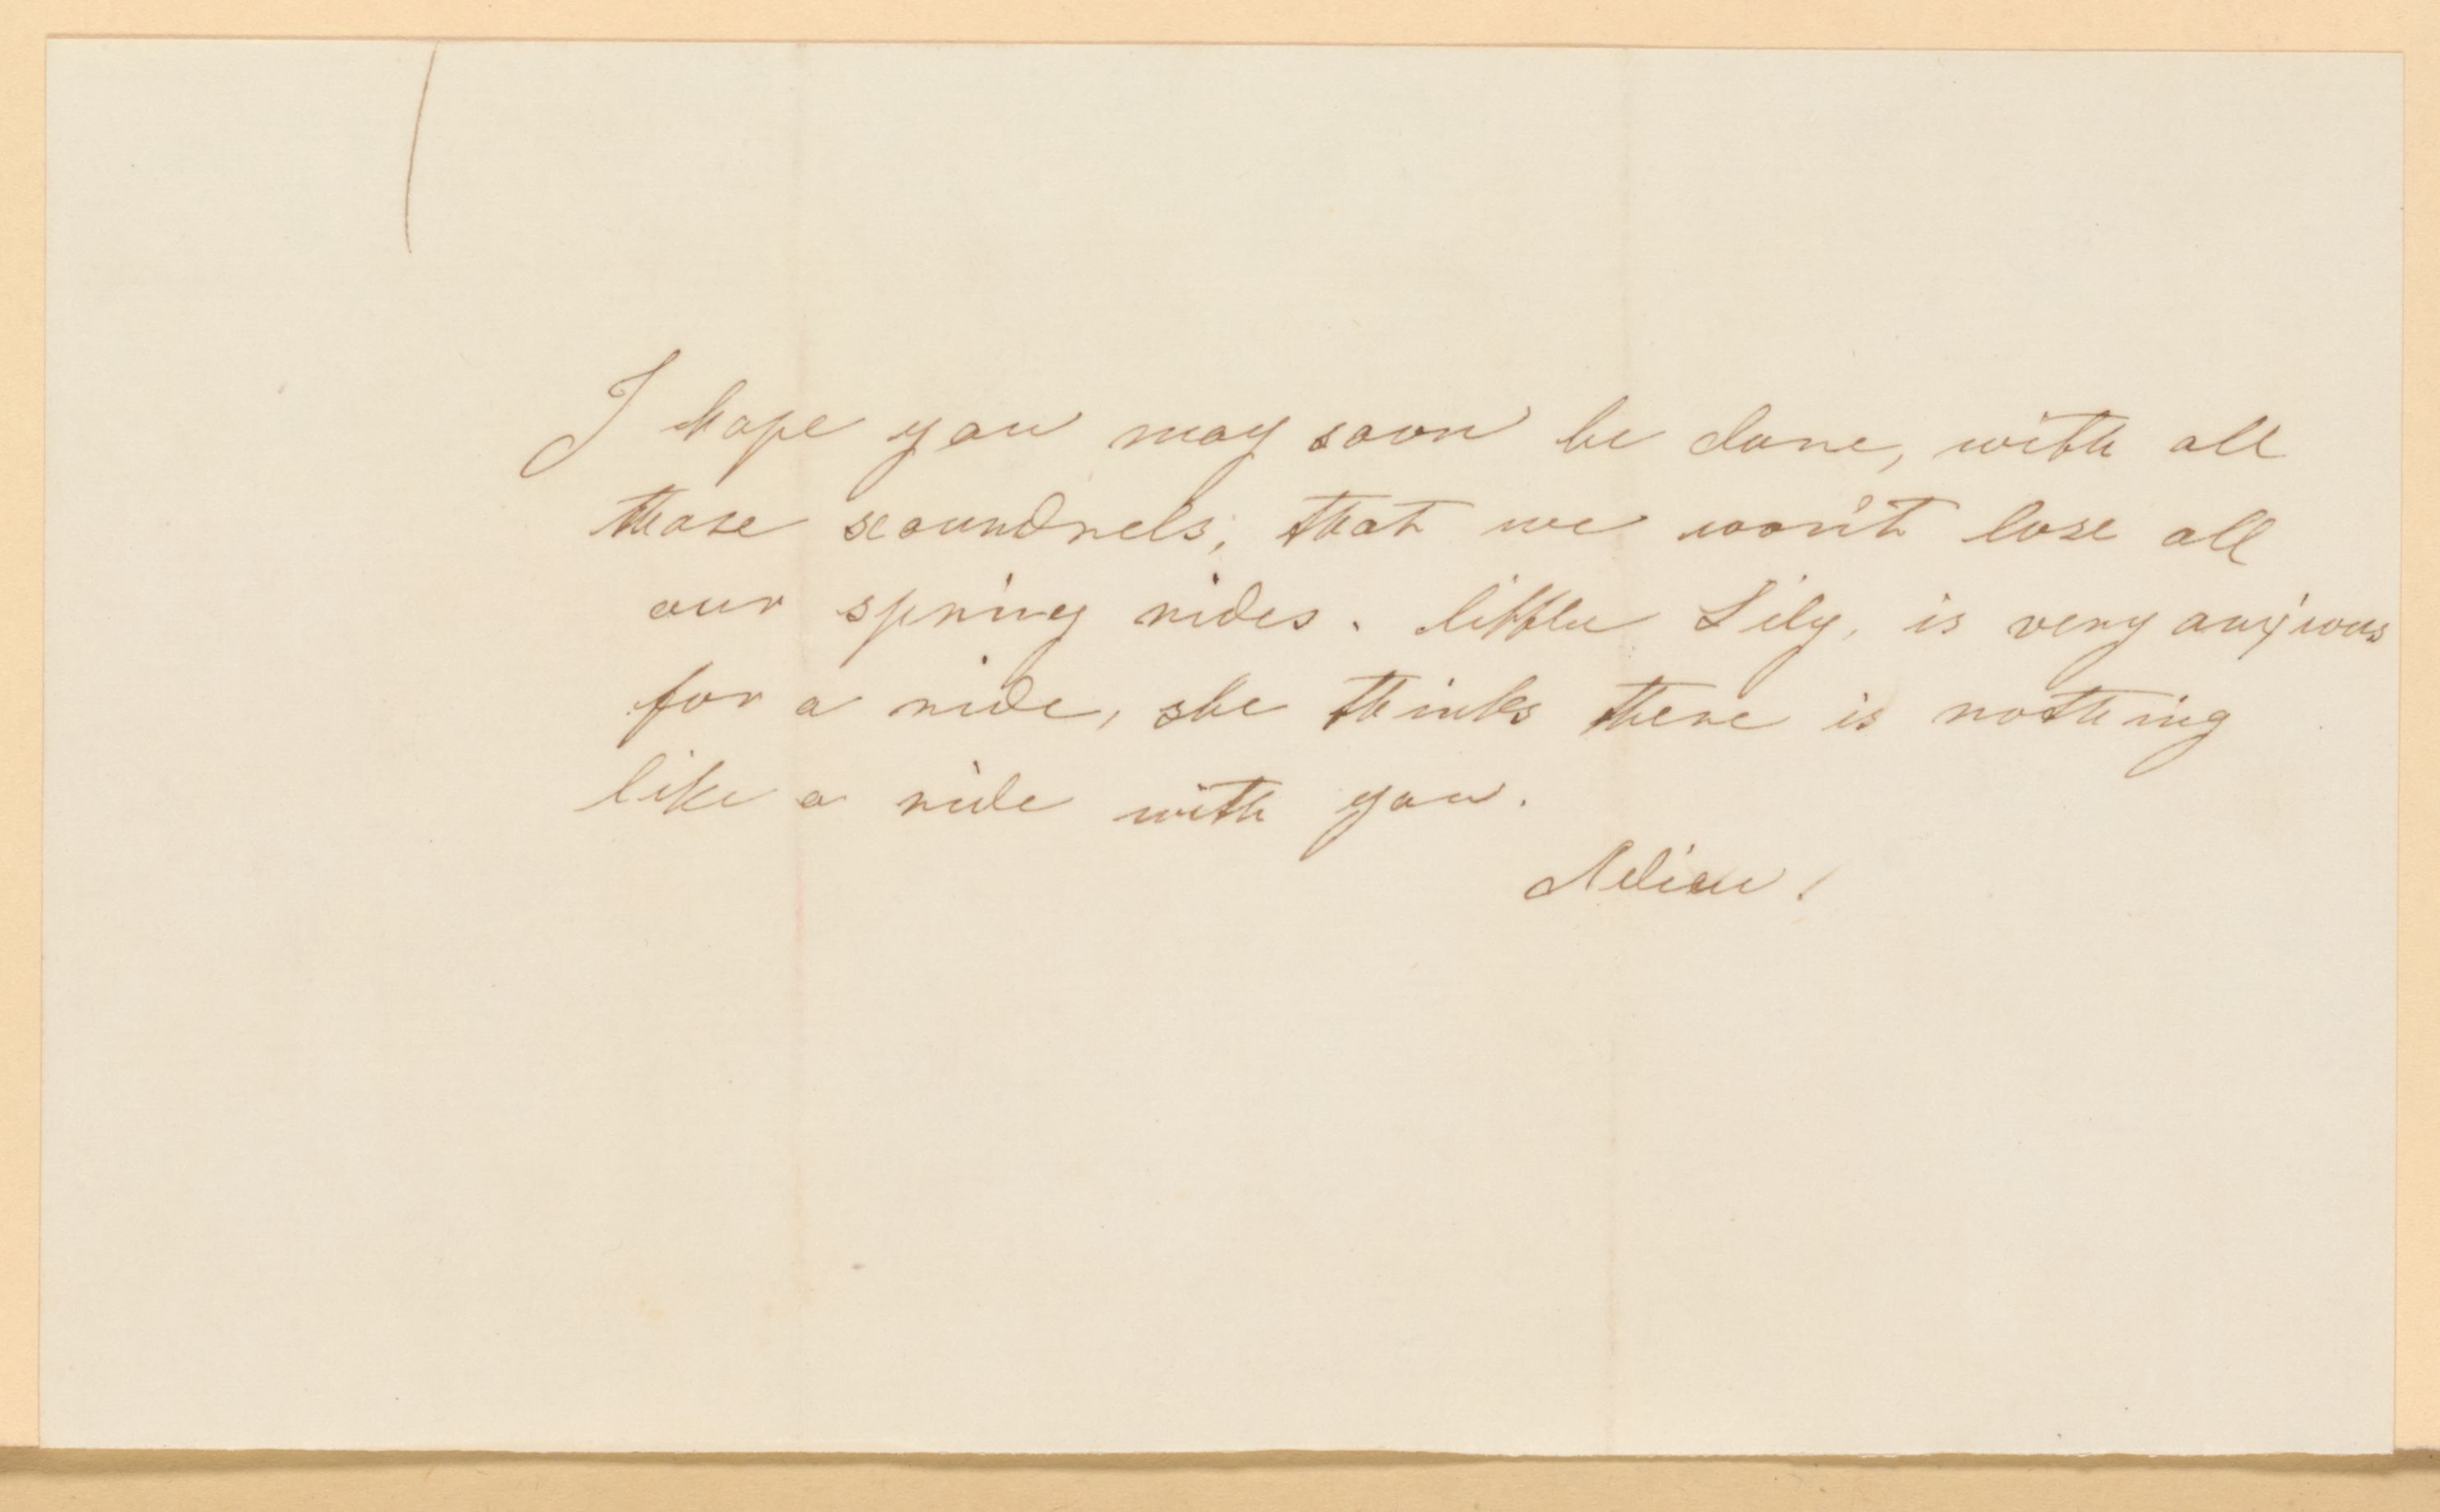 I hope you may soon be done, with all
those scoundrels, that we won't lose all
our spring rides. little Lily, is very anxious
for a ride, she thinks there is nothing
like a ride with you.